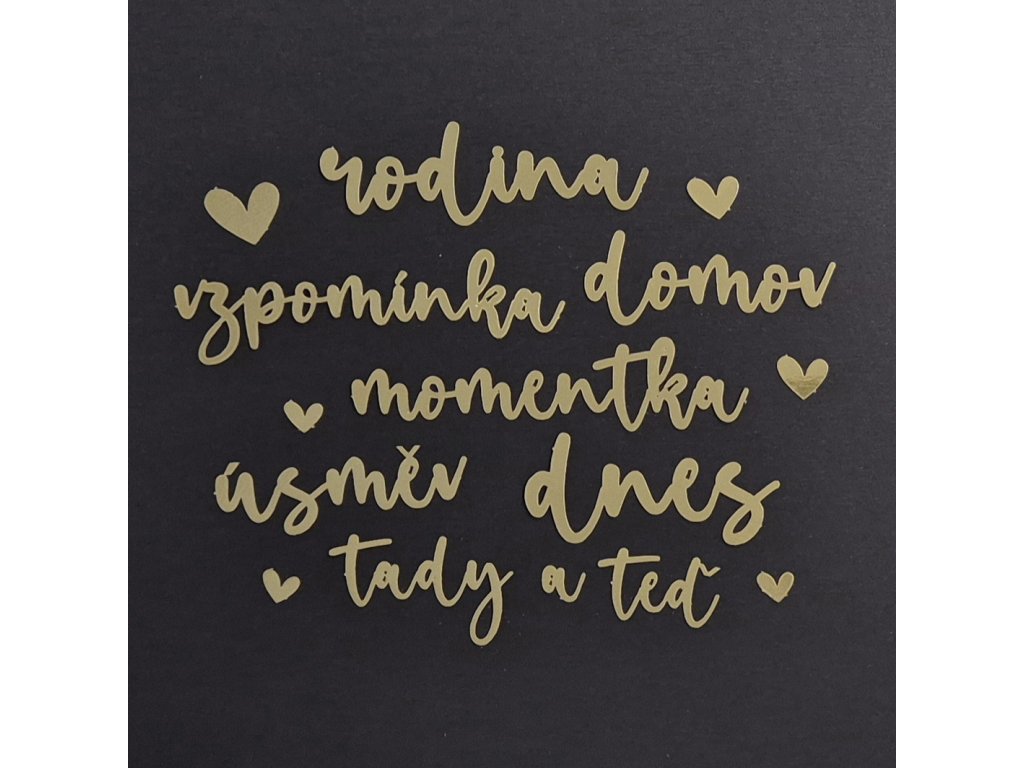 rodina
vzpomínka domov
momentka
úsměv dnes
tady a teď